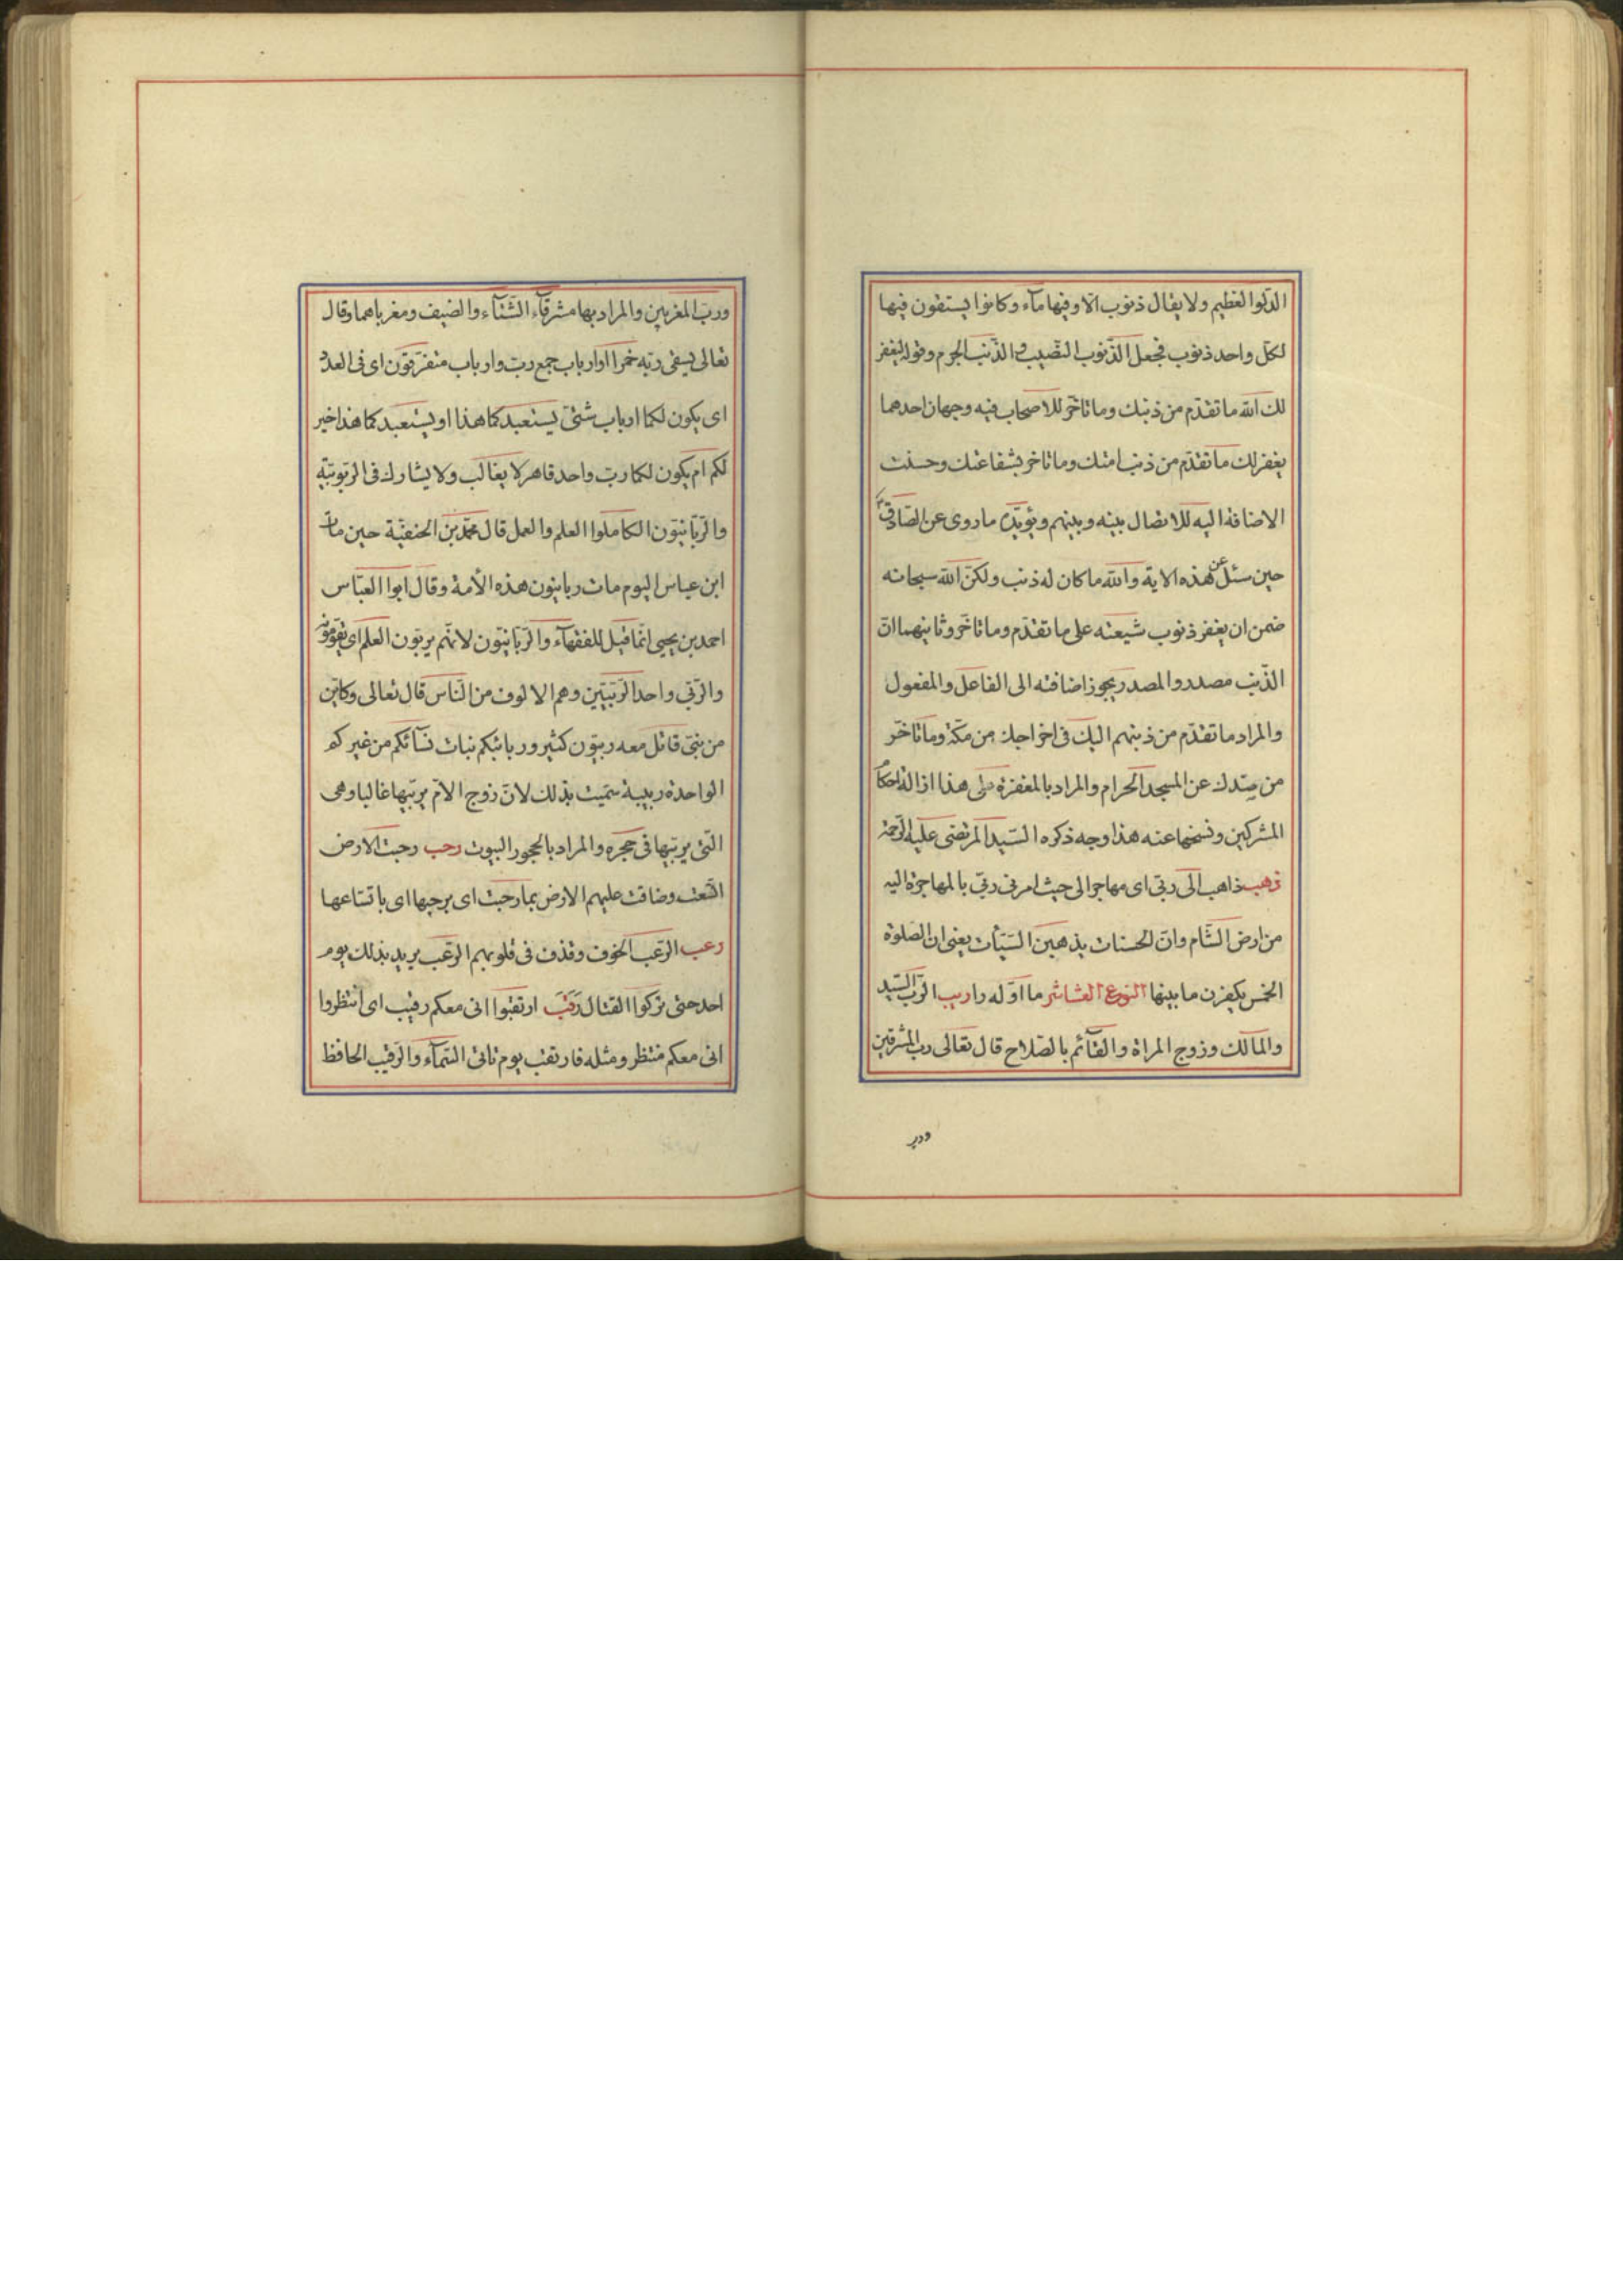 الدلوا العظيم ولا يقال ذنوب الا وفيها مآء وكانوا يستقون فيها
لكل واحد ذنوب فجعل الذنوب النصيب والذنب الجرم وقوله ليغفر
لك الله ما تقدم من ذنبك وما تأخر للاصحاب فيه وجهان احدهما
يغفر لك ما تقدم من ذنب امتك وما تاخر بشفاعتك وحسنت
الاضافة اليه للاتصال بينه وبينهم ويؤيده ما روى عن الصادق
حين سئل عن هذه الاية والله ما كان له ذنب ولكن الله سبحانه
ضمن ان يغفر ذنوب شيعته على ما تقدم وما تأخر وثانيهما ان
الذنب مصدر والمصدر يجوز اضافته الى الفاعل والمفعول
والمراد ما تقدم من ذنبهم اليك فى اخراجك من مكة وما تأخر
من صدك عن المسجد الحرام والمراد بالمغفرة على هذا ازالة احكام
المشركين ونسخها عنه هذا وجه ذكره السيد المرتضى عليه الرحمة
ذهب ذاهب الى ربى اى مهاجر الى حيث امرنى ربى بالمهاجرة اليه
من ارض الشام وان الحسنات يذهبن السيئات يعنى ان الصلوة
الخمس يكفرن ما بينها النوع العاشر ما اوله را ربب الرب السيد
والمالك وزوج المراة والقآئم بالصلاح قال تعالى رب المشرقين
ورب
ورب المغربين والمراد بها مشرقآء الشتآء والصيف ومغرباهما وقال
تعالى يسقى ربه خمرا اوارباب جمع رب وارباب متفرقون اى فى العدد
اى يكون لكما ارباب شتى يستعبد كما هذا او يستعبد كما هذا خير
لكم ام يكون لكما رب واحد قاهر لا يغالب ولا يشارك فى الربوبية
والربانيون الكاملوا العلم والعمل قال محمد بن الحنفية حين مات
ابن عباس اليوم مات ربانيون هذه الأمة وقال ابوا العباس
احمد بن يحيى انما قيل للفقهآء والربانيون لانهم يربون العلم اى يقومونه
والربى واحد الربيين وهم الالوف من الناس قال تعالى وكاين
من نبى قاتل معه ربيون كثير وربائبكم نبات نسآئكم من غيركم
الواحدة ربيبة سميت بذلك لان زوج الام يربيها غالبا وهى
التى يربيها فى حجره والمراد بالحجور البيوت رحب رحبت الارض
اتسعت وضاقت عليهم الارض بما رحبت اى برحبها اى باتساعها
رعب الرعب الخوف وقذف فى قلوبهم الرعب يريد بذلك يوم
احد حتى تركوا القتال رقب ارتقبوا انى معكم رقيب اى انتظروا
انى معكم منتظر ومثله فارتقب يوم تاتى السمآء والرقيب الحافظ